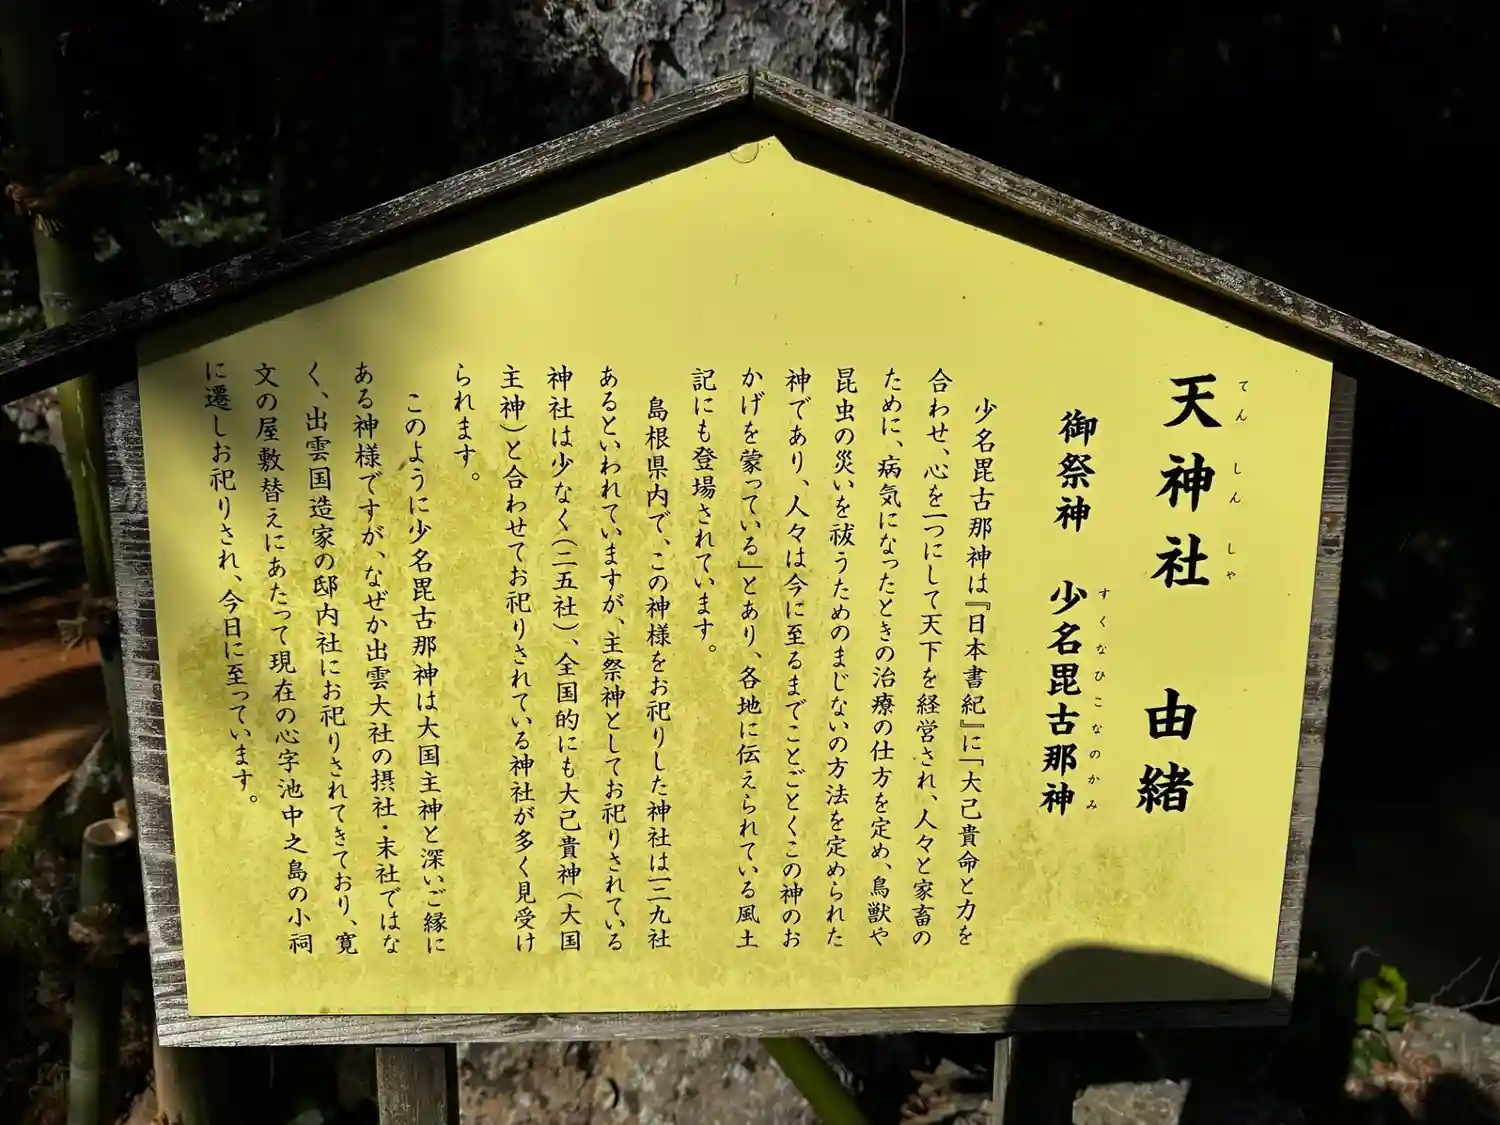 天神社 由緒
てん しん しゃ
御祭神 少名毘古那神
すくなひこなのかみ
少名毘古那神は『日本書紀』に「大己貴命と力を
合わせ、心を一つにして天下を経営され、人々と家畜の
ために、病気になったときの治療の仕方を定め、鳥獣や
昆虫の災いを祓うためのまじないの方法を定められた
神であり、人々は今に至るまでことごとくこの神のお
かげを蒙っている」とあり、各地に伝えられている風土
記にも登場されています。
島根県内で、この神様をお祀りした神社は一二九社
あるといわれていますが、主祭神としてお祀りされている
神社は少なく(二五社)、全国的にも大己貴神(大国
主神)と合わせてお祀りされている神社が多く見受け
られます。
このように少名毘古那神は大国主神と深いご縁に
ある神様ですが、なぜか出雲大社の摂社・末社ではな
く、出雲国造家の邸内社にお祀りされてきており、寛
文の屋敷替えにあたって現在の心字池中之島の小祠
に遷しお祀りされ、今日に至っています。